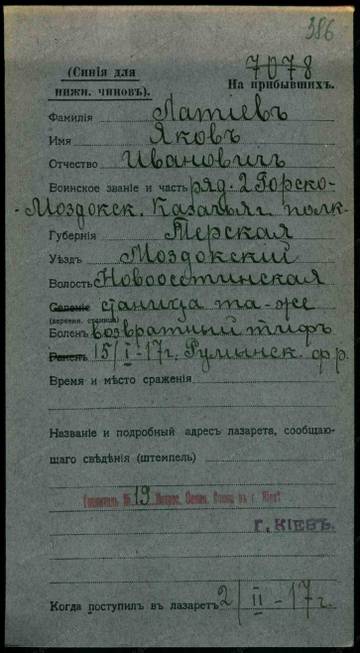 386
7078
(Синія для
нижн. чиновъ).
На прибывшихъ.
Фамилія Латіевъ
Имя Яковъ
Отчество Ивановичъ
Воинское званіе и часть ряд. 2 Горско-
-Моздокск. Казачьяг. полк.
Губернія Терская
Уѣздъ Моздокскій
Волость Новоосетинская
Селеніе станица та-же
(деревня, станица)
Боленъ возвратный тифъ
Раненъ 15/I-17г. Румынск. фр.
Время и мѣсто сраженія
Названіе и подробный адресъ лазарета, сообщаю-
щаго свѣдѣнія (штемпель)
№ 19 въ г. Кіевѣ
Г. КІЕВЪ.
Когда поступил въ лазаретъ 2/II-17г.